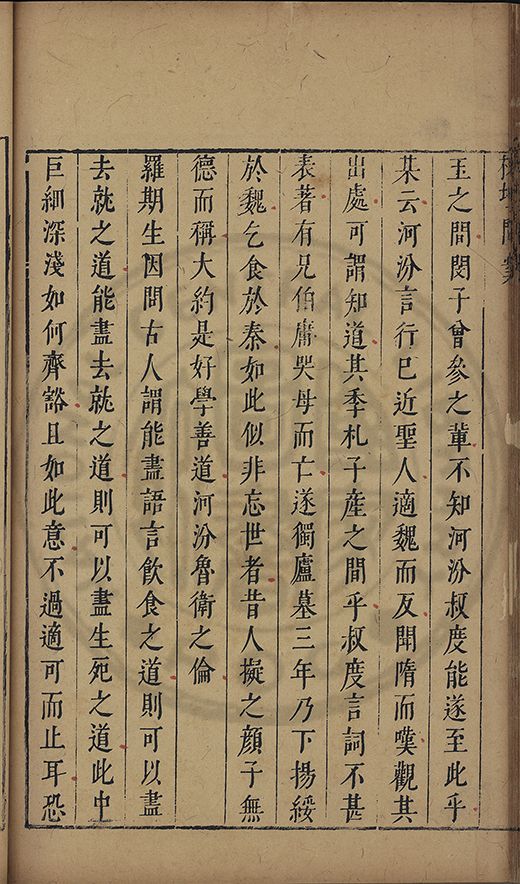 玉之間閔子曾參之輩不知河汾叔度能遂至此乎
某云河汾言行已近聖人適魏而反聞隋而嘆觀其
出處可謂知道其季札子產之間乎叔度言詞不甚
表著有兄伯庸哭母而亡遂獨廬墓三年乃下揚綏
於魏乞食於秦如此似非忘世者昔人擬之顏子無
德而稱大約是好學善道河汾魯衛之倫
羅期生因問古人謂能盡語言飲食之道則可以盡
去就之道能盡去就之道則可以盡生死之道此中
巨細深淺如何齊豁且如此意不過適可而止耳恐